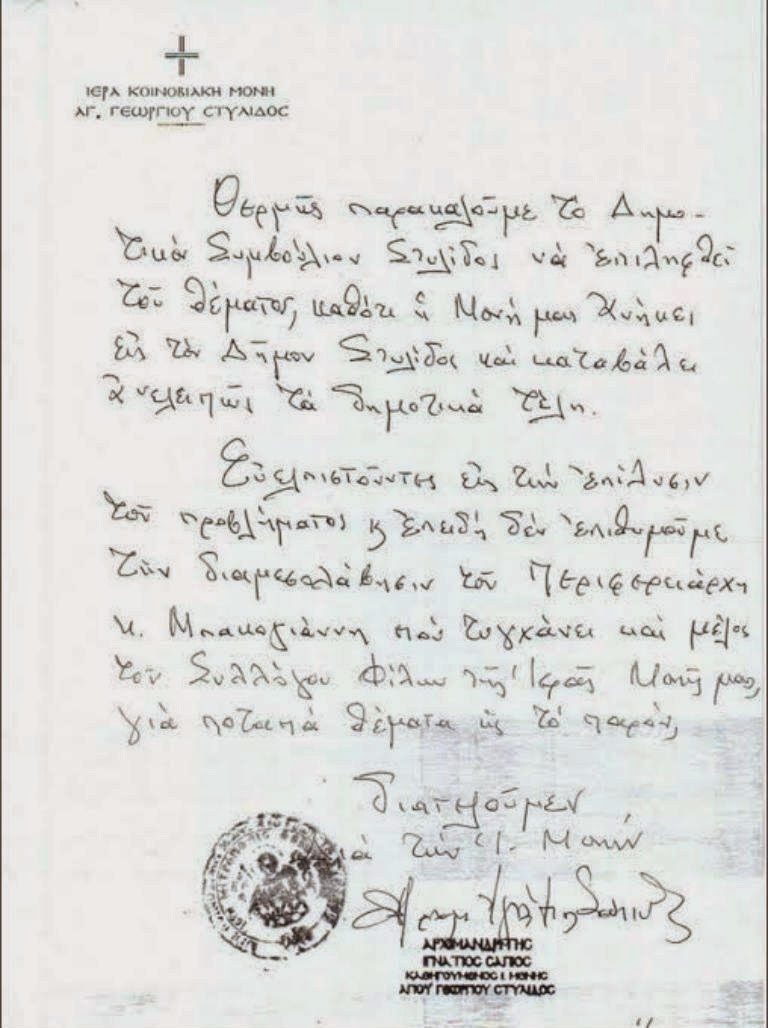 ΙΕΡΑ ΚΟΙΝΟΒΙΑΚΗ ΜΟΝΗ
ΑΓ. ΓΕΩΡΓΙΟΥ ΣΤΥΛΙΔΟΣ
Θερμῶς παρακαλοῦμε τὸ Δημο-
τικὸ Συμβούλιον Στυλίδος νὰ ἐπιληφθεῖ
τοῦ θέματος, καθότι ἡ Μονή μας ἀνήκει
εἰς τὸν Δῆμον Στυλίδος καὶ καταβάλει
ἀνελειπῶς τὰ δημοτικὰ τέλη.
Εὐελπιστοῦντες εἰς τὴν ἐπίλυσιν
τοῦ προβλήματος κ ἐπειδὴ δὲν ἐπιθυμοῦμε
τὴν διαμεσολάβησιν τοῦ Περιφερειάρχη
κ. Μπακογιάννη ποὺ τυγχάνει καὶ μέλος
τοῦ Συλλόγου Φίλων τῆς Ἱερᾶς Μονῆς μας,
γιὰ ποταπὰ θέματα ὡς τὸ παρόν,
διατελοῦμεν
τὴν Ἱ. Μονήν
ΑΡΧΙΜΑΝΔΡΙΤΗΣ
ΙΓΝΑΤΙΟΣ
ΚΑΘΗΓΟΥΜΕΝΟΣ Ι. ΜΟΝΗΣ
ΑΓΙΟΥ ΓΕΩΡΓΙΟΥ ΣΤΥΛΙΔΟΣ